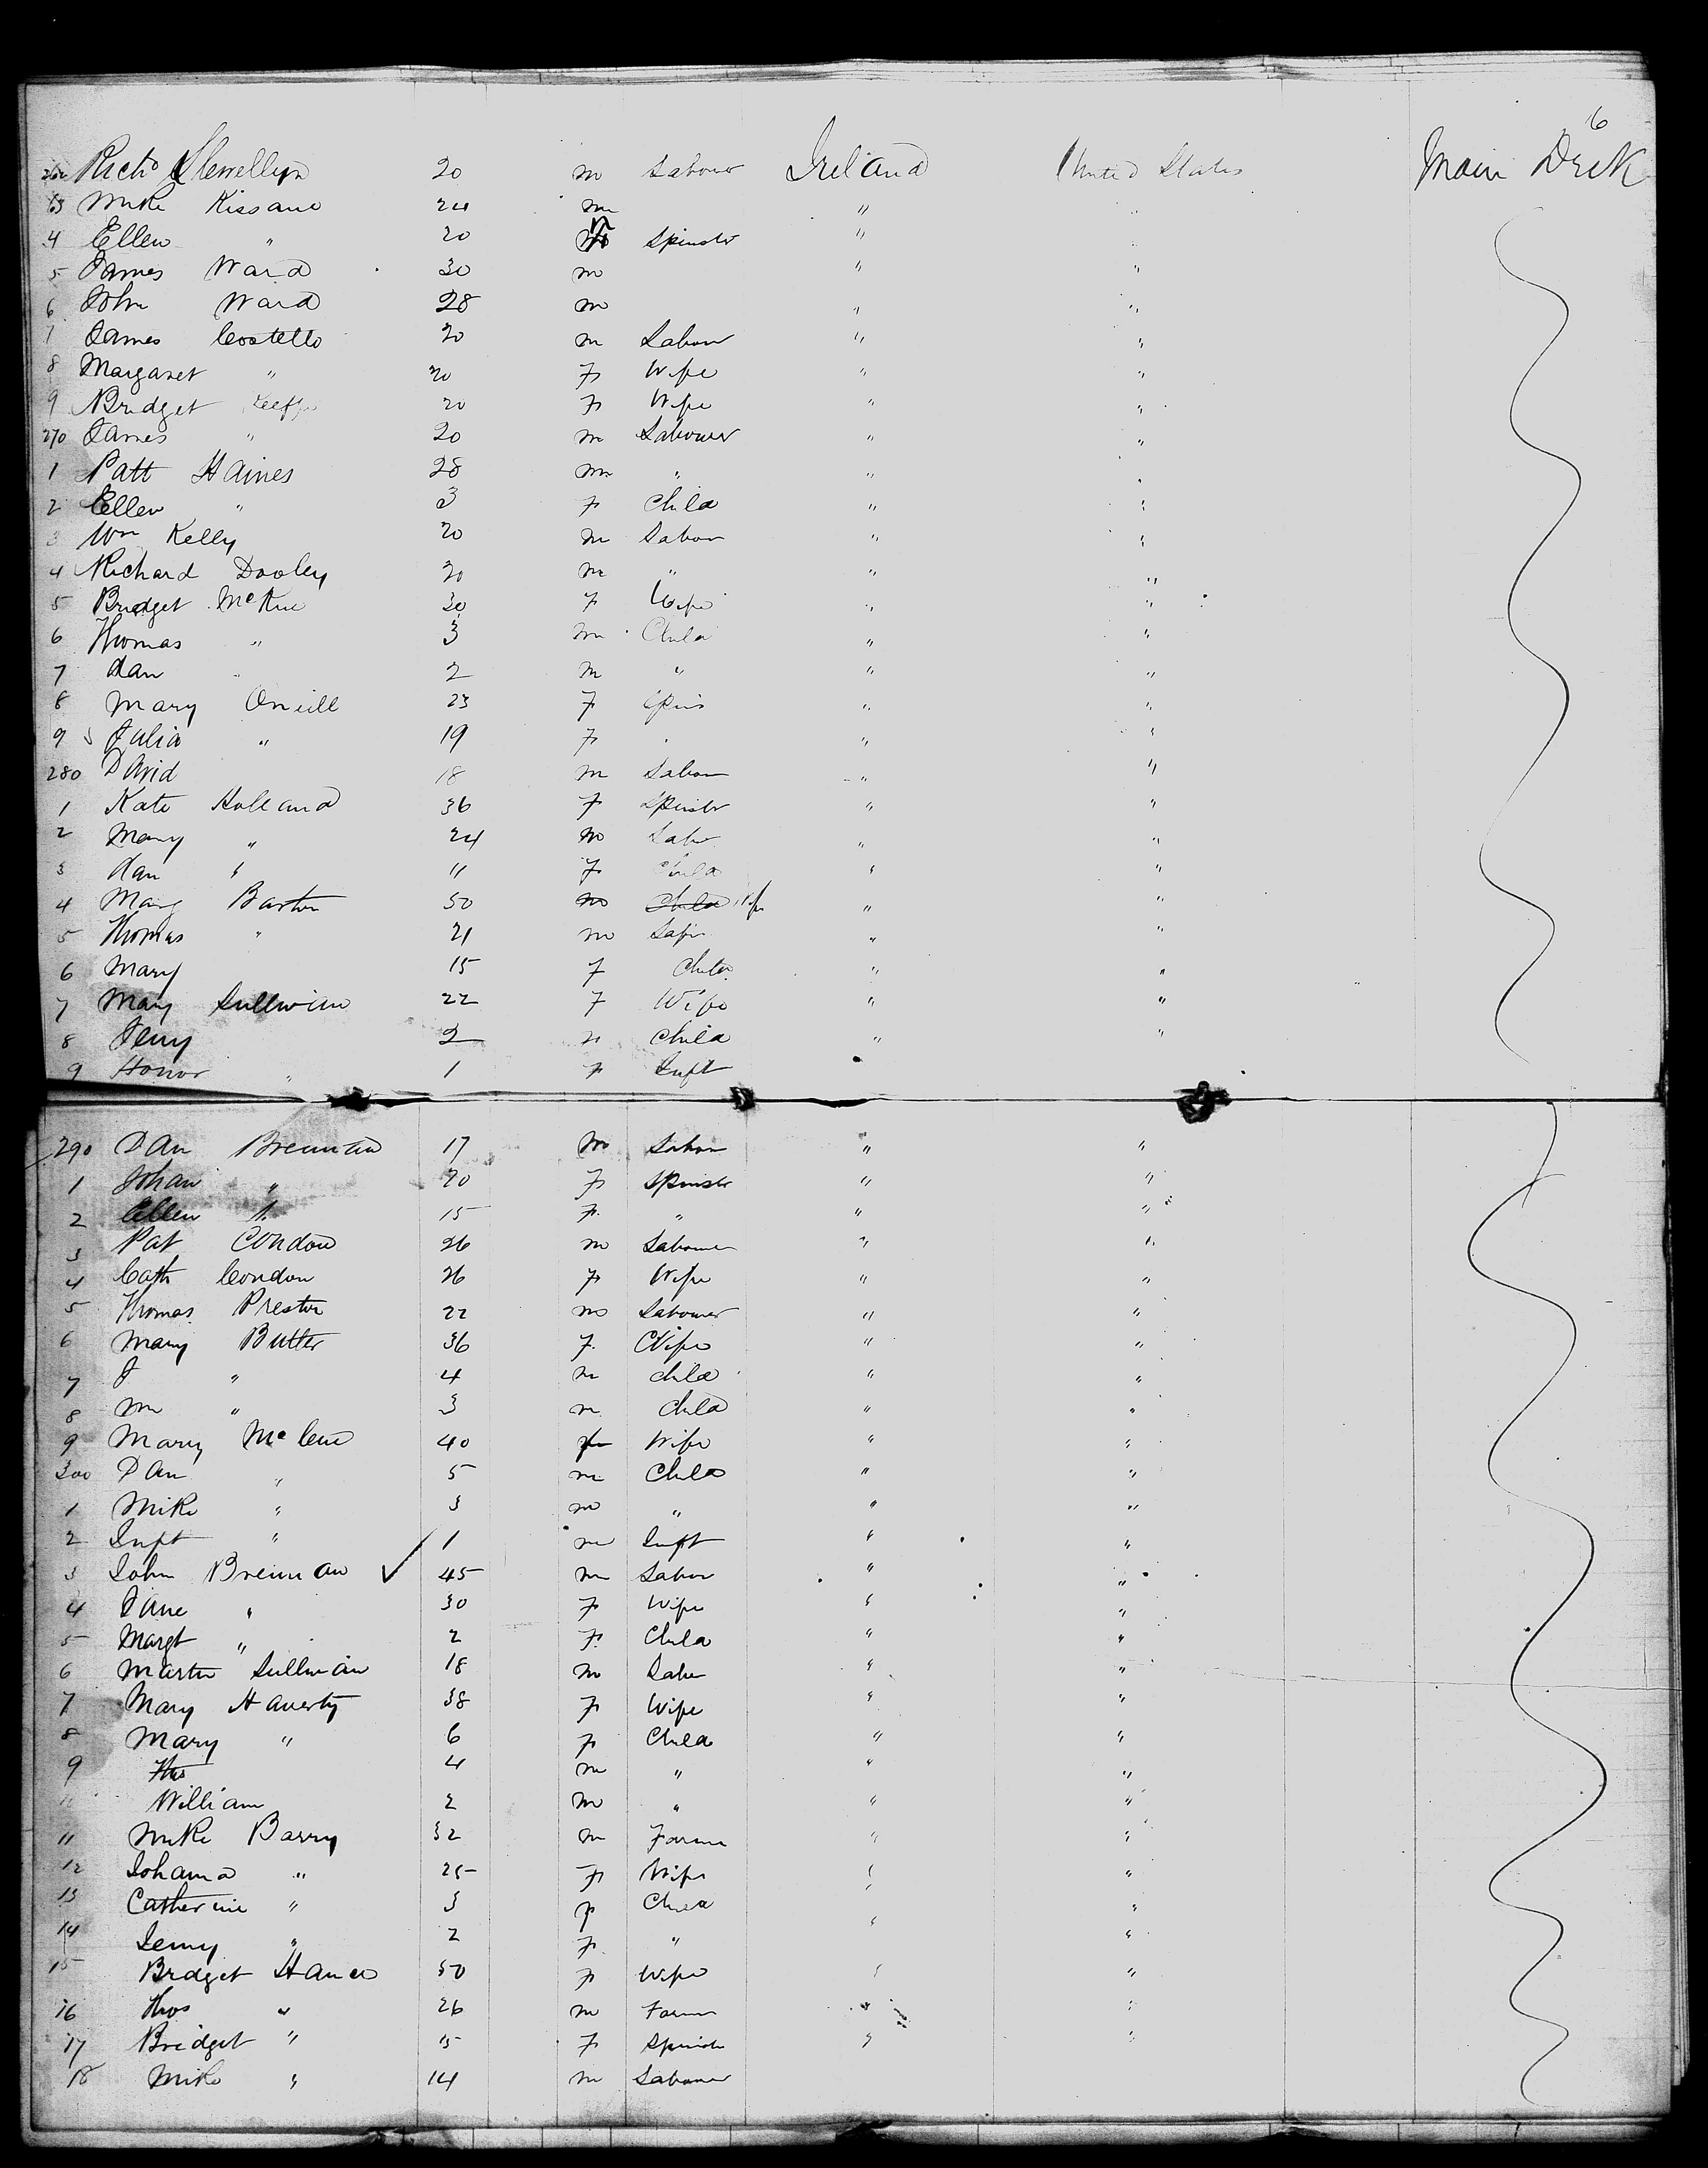 6
262 Richd Llewellyn 20 m Labour Ireland United States Main Deck
63 Mike Kissane 24 m " "
4 Ellen " 20 Spinster " "
5 James Ward 30 m " "
6 John Ward 28 m " "
7 James Costello 20 m Labour " "
8 Margaret " 20 F Wife " "
9 Bridget Keeffe 20 F Wife " "
270 James " 20 m Labourer " "
1 Patt Haines 28 m " " "
2 Ellen " 3 F Child " "
3 Wm Kelly 20 m Labour " "
4 Richard Dooley 20 m " " "
5 Bridget McKue 30 F Wife " "
6 Thomas " 3 m Child " "
7 Dan " 2 m " " "
8 Mary Oneill 23 F Spins " "
9 Julia " 19 F " "
280 David 18 m Labour " "
1 Kate Holland 36 F Spinster " "
2 Mary " 24 m Labr " "
3 Dan " 11 F Child " "
4 Mary Barton 50 m Child Wife " "
5 Thomas " 21 m " "
6 Mary 15 F Child " "
7 Mary Sullivan 22 F Wife " "
8 Jerry 2 m Child " "
9 Honor " 1 F Inft
290 Dan Brennan 17 m Labour " "
1 Johan " 20 F Spinster " "
2 Ellen " 15 F " " "
3 Pat Condon 26 m Labourer " "
4 Cath Condon 26 F Wife " "
5 Thomas Preston 22 m Labourer " "
6 Mary Butler 36 F Wife " "
7 J " 4 m child " "
8 m " 3 m child " "
9 Mary 40 F Wife " "
300 Dan " 5 m Child " "
1 Mike " 3 m " " "
2 Inft " 1 m Inft " "
3 John Brennan ✓ 45 m Labour " "
4 Jane " 30 F Wife " "
5 Margt " 2 F Child " "
6 Martin Sullivan 18 m Labr " "
7 Mary Haverty 38 F Wife " "
8 Mary " 6 F Child " "
9 Thos 4 m " " "
10 William 2 m " " "
11 Mike Barry 32 m Farmer " "
12 Johanna " 25 F Wife " "
13 Catherine " 3 F Child "
14 Jenny " 2 F " " "
15 Bridget 50 F Wife " "
16 Thos " 26 m Farmer " "
17 Bridget " 15 F Spinster " "
18 Mike " 14 m Labourer